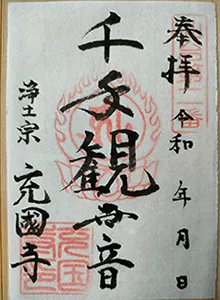 奉拝
令和 年 月 日
千手観世音
浄土宗
充國寺